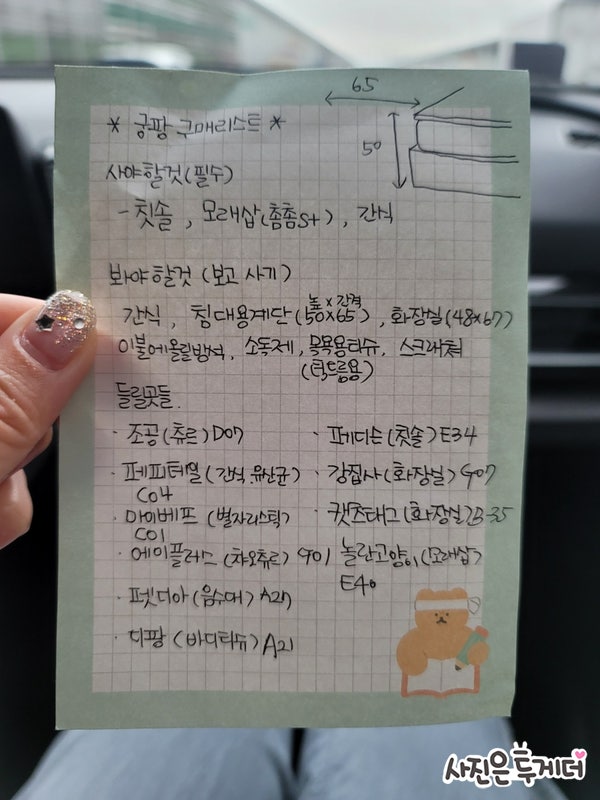 65
50
* 궁팡 구매리스트 *
사야할것(필수)
- 칫솔, 모래삽(촘촘S+), 간식
봐야할것 (보고 사기)
높×간격
간식, 침대용계단(50×65), 화장실(48×67)
이불에올릴방석, 소독제, 목욕용티슈, 스크래쳐
(턱드름용)
들릴곳들.
· 조공(츄르)D07
· 페디슨(칫솔)E34
· 페피테일(간식.유산균)
C04
· 강집사(화장실)G07
· 마이베프(별자리스틱)
C01
· 캣츠태그(화장실)B-35
· 에이플러스(챠오츄르) G01
놀란고양이(모래삽)
E40
· 펫디아(음수대) A27
· 디팡(바디티슈)A21
사진은투게더